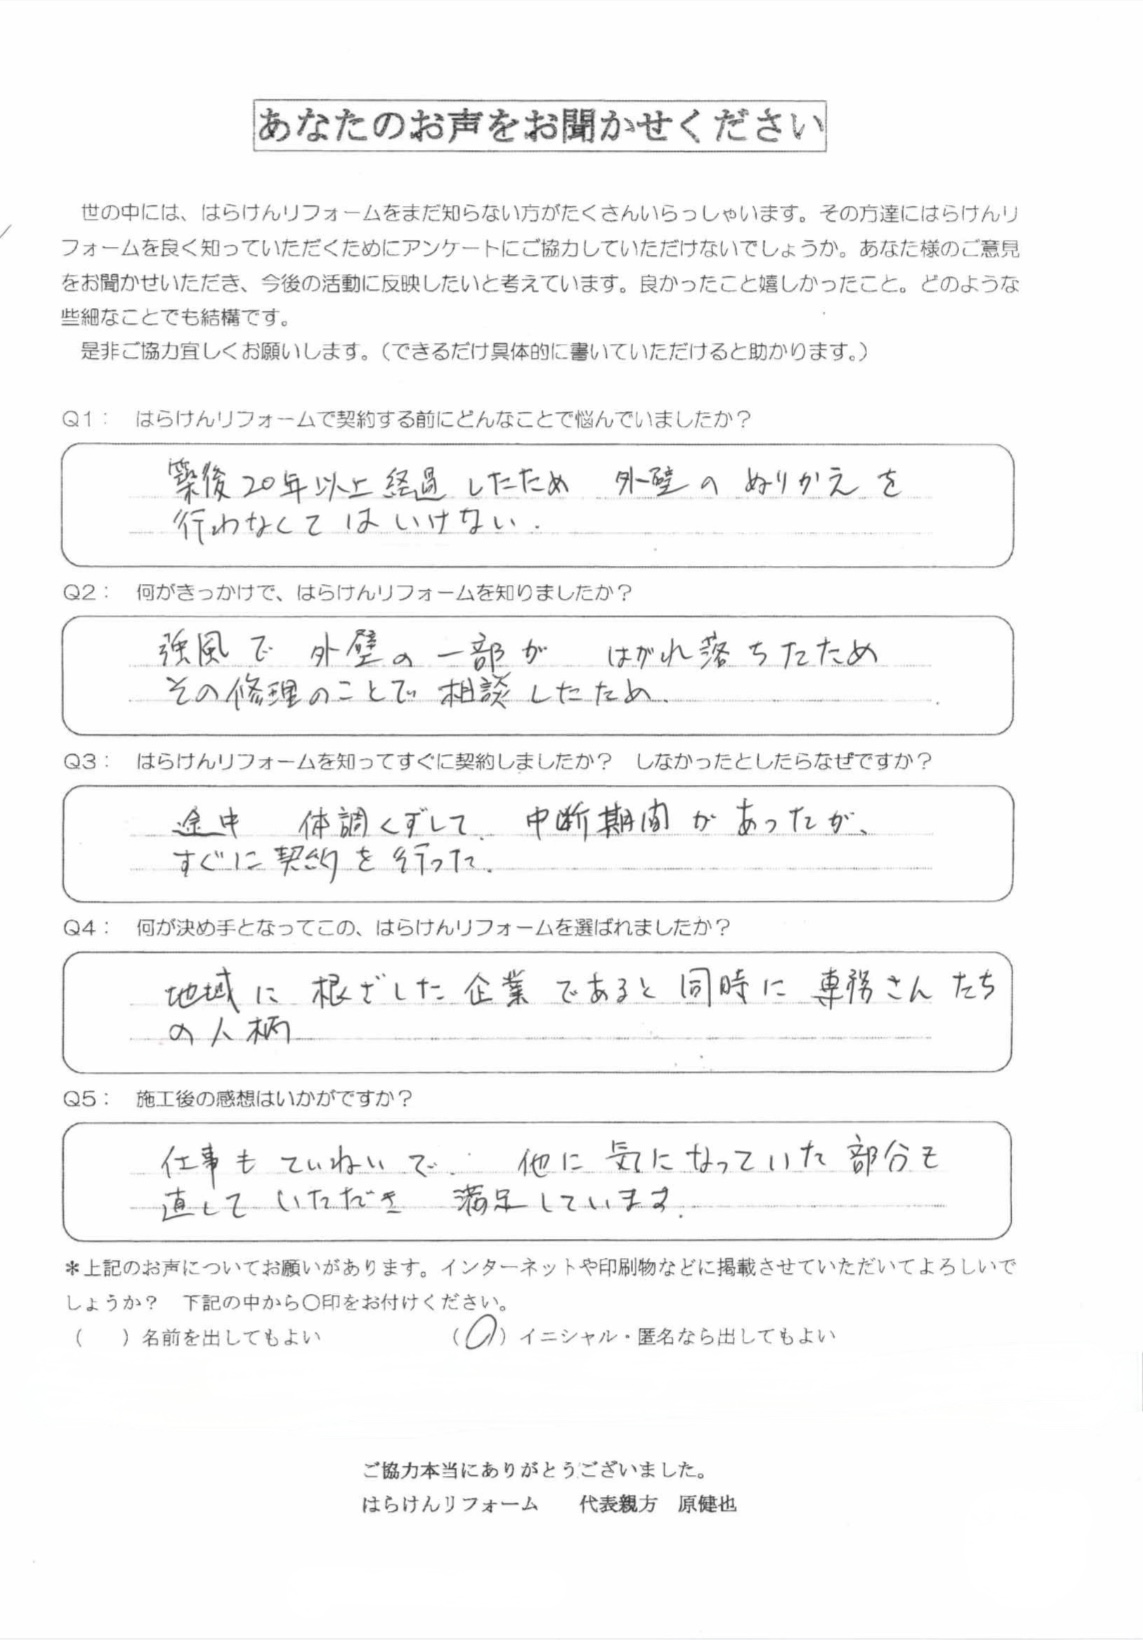 あなたのお声をお聞かせください
世の中には、はらけんリフォームをまだ知らない方がたくさんいらっしゃいます。その方達にはらけんリ
フォームを良く知っていただくためにアンケートにご協力していただけないでしょうか。あなた様のご意見
をお聞かせいただき、今後の活動に反映したいと考えています。良かったこと嬉しかったこと。どのような
些細なことでも結構です。
是非ご協力宜しくお願いします。（できるだけ具体的に書いていただけると助かります。）
Q1： はらけんリフォームで契約する前にどんなことで悩んでいましたか？
築後20年以上経過したため 外壁のぬりかえを
行わなくてはいけない.
Q2： 何がきっかけで、はらけんリフォームを知りましたか？
強風で 外壁の一部が はがれ落ちたため
その修理のことで相談したため.
Q3： はらけんリフォームを知ってすぐに契約しましたか？ しなかったとしたらなぜですか？
途中 体調くずして. 中断期間があったが、
すぐに契約を行った.
Q4： 何が決め手となってこの、はらけんリフォームを選ばれましたか？
地域に根ざした企業であると同時に専務さんたち
の人柄
Q5： 施工後の感想はいかがですか？
仕事もていねいで. 他に気になっていた部分も
直していただき 満足しています.
＊上記のお声についてお願いがあります。インターネットや印刷物などに掲載させていただいてよろしいで
しょうか？ 下記の中から〇印をお付けください。
（ ）名前を出してもよい （〇）イニシャル・匿名なら出してもよい
ご協力本当にありがとうございました。
はらけんリフォーム 代表親方 原健也